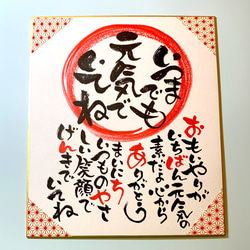 いつま
でも
元気で
いてね
おもいやりが
いちばん元気の
素だよ心から
ありがとう
まいにち
いつものやさ
しい笑顔で
げんきで
いてね